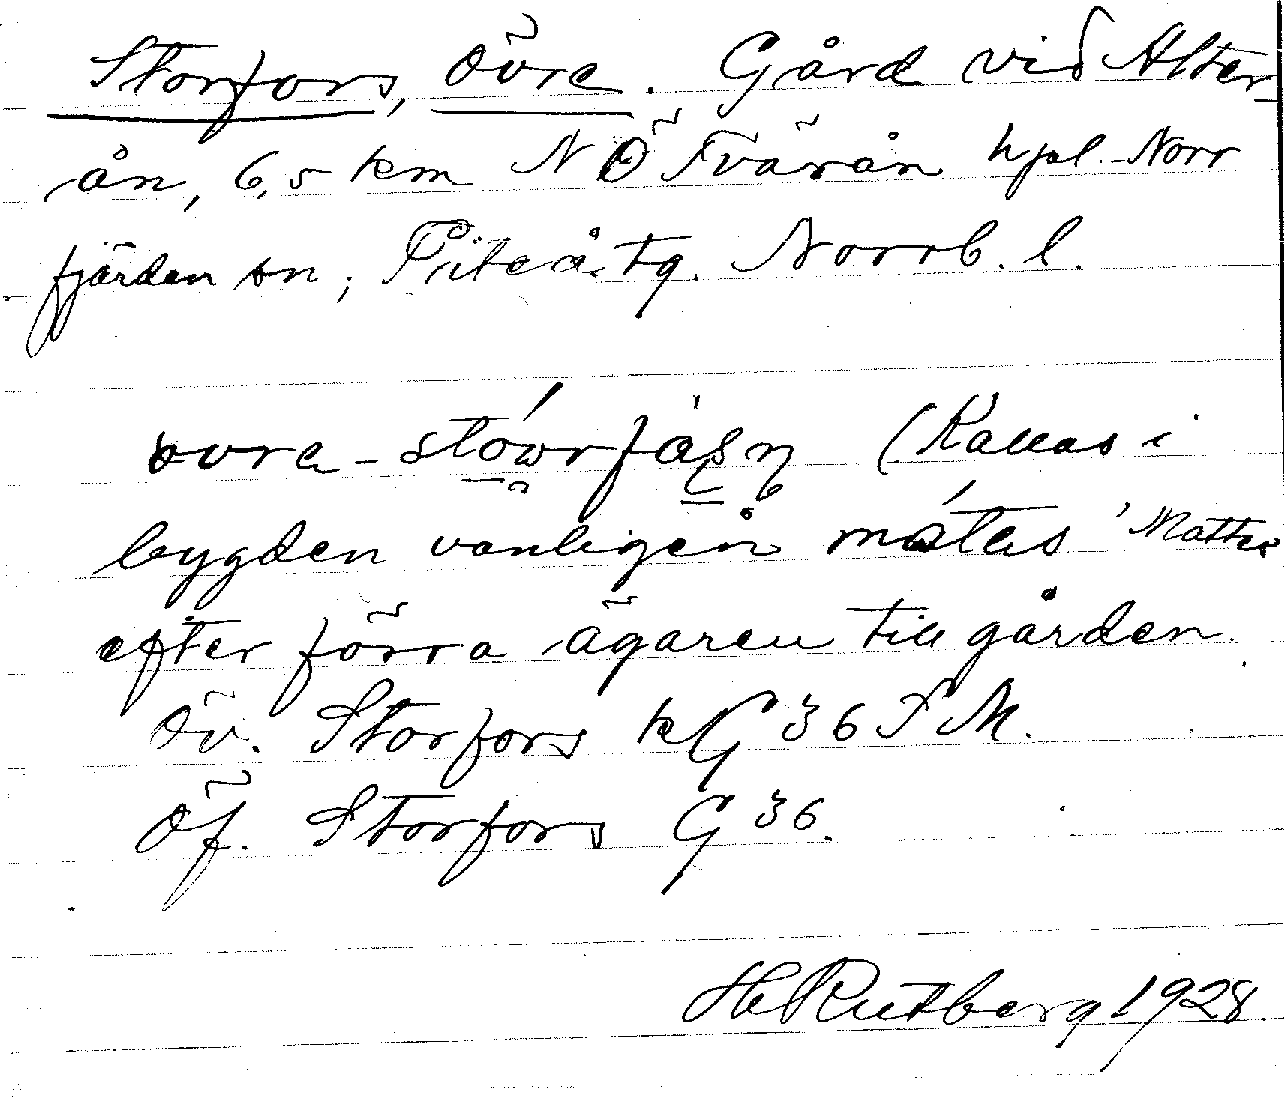 Storfors, Övre. Gård vid Alter-
ån, 6,5 km NÖ Tvärån hpl. Norr
fjärden sn; Piteå tg. Norrb. l.
(Kallas i
bygden vanligen mátas 'Mattis
efter förra ägaren till gården.
Öv. Storfors kG 36 SM.
Öf. Storfors G 36.
H Rutberg 1928.